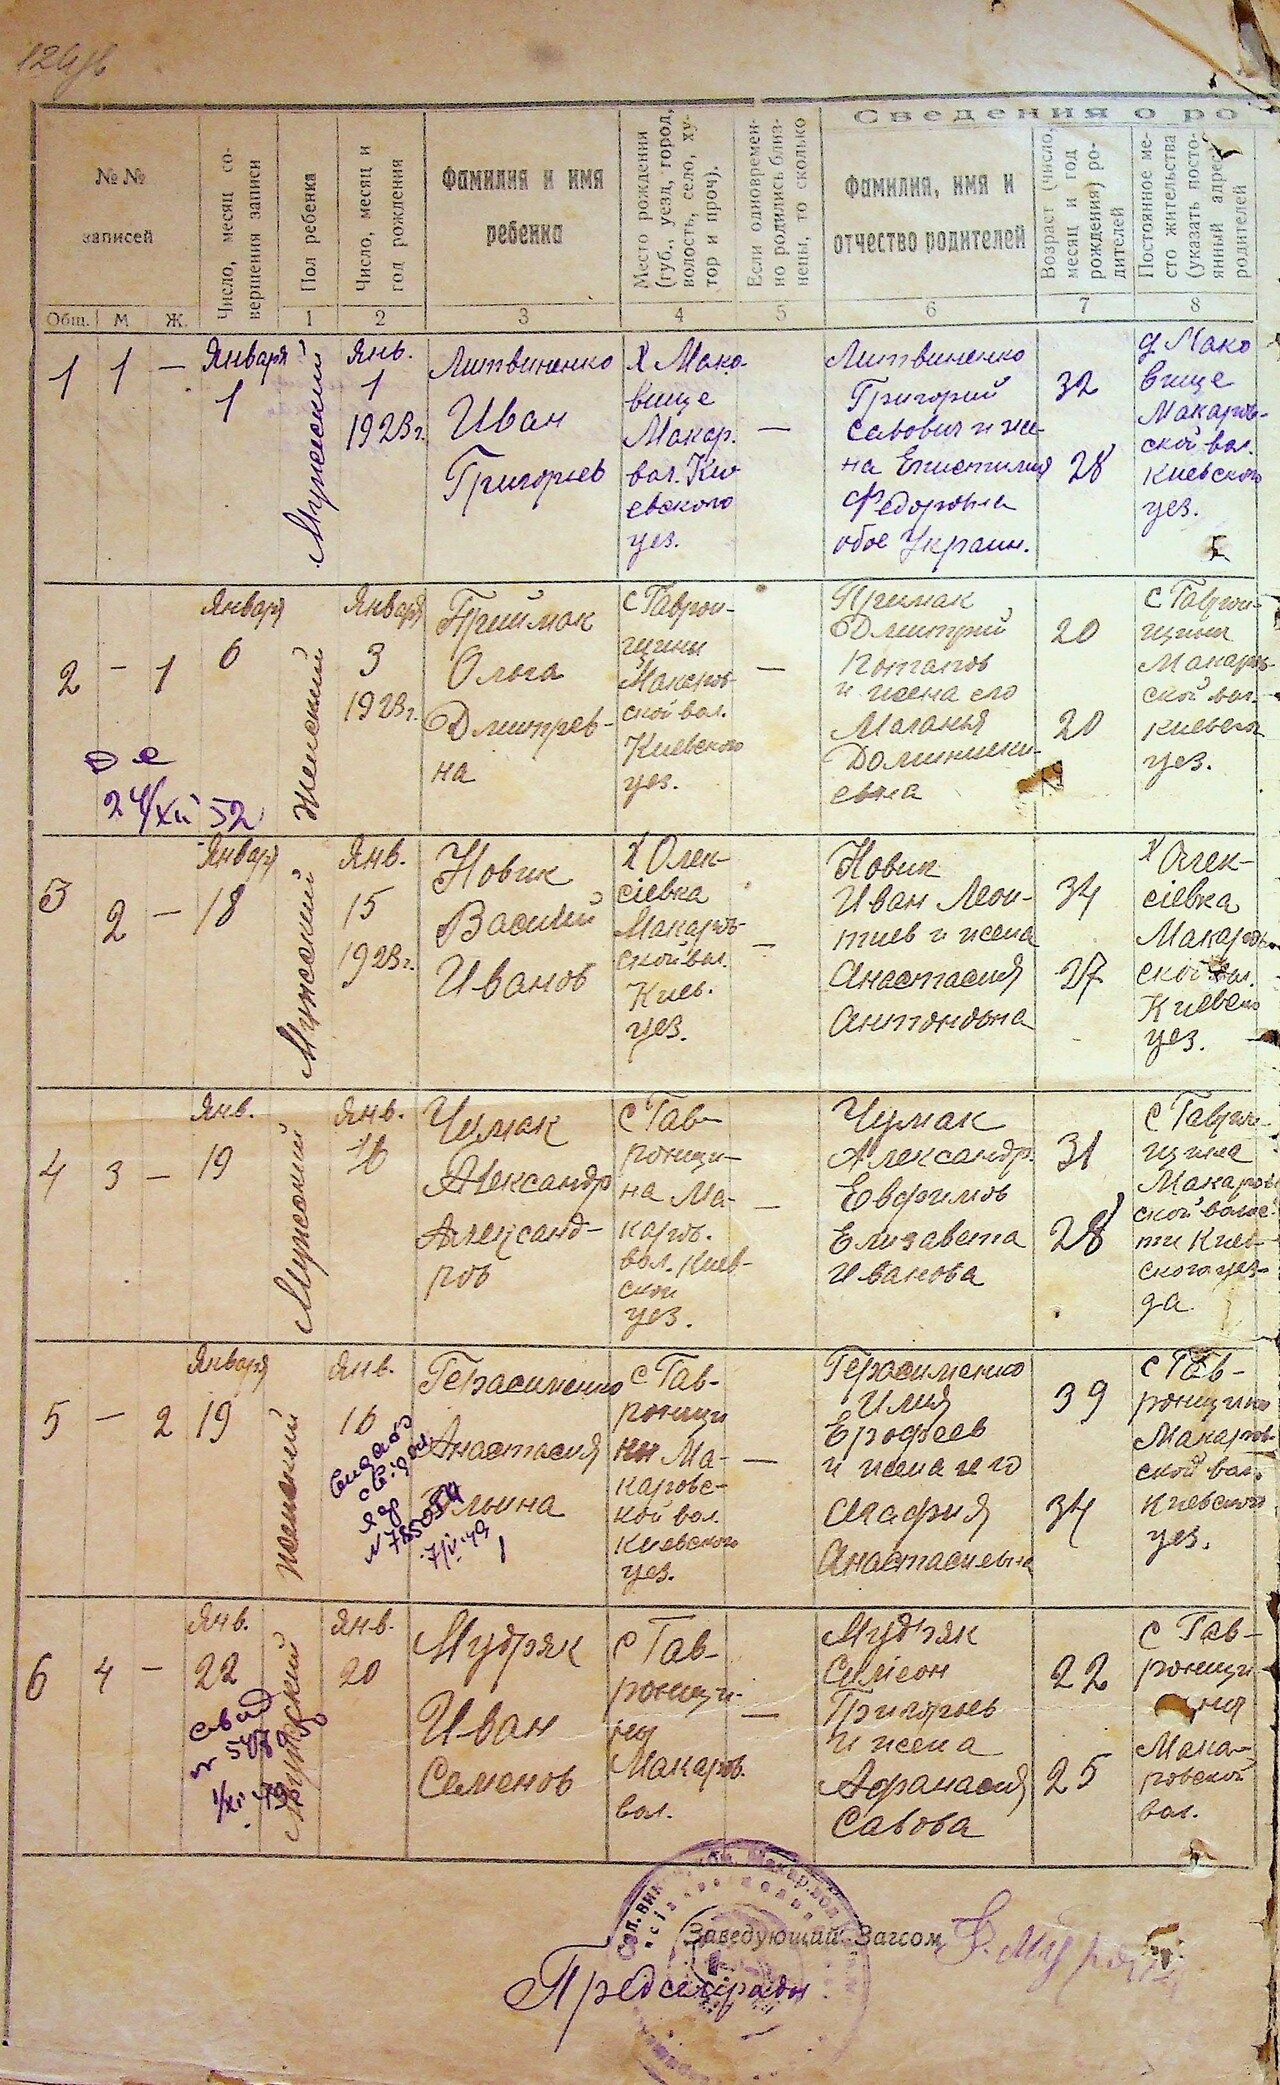 Сведения о ро
№ №
записей
Число, месяц со-
вершения записи
Пол ребенка
Число, месяц и
год рождения
Фамилия и имя
ребенка
Место рождения
(губ., уезд, город,
волость, село, ху-
тор и проч).
Если одновремен-
но родились близ-
нецы, то сколько
Фамилия, имя и
отчество родителей
Возраст (число,
месяц и год
рождения) ро-
дителей
Постоянное ме-
сто жительства
(указать посто-
янный адрес)
родителей
Общ. М Ж. 1 2 3 4 5 6 7 8
1 1 —
Января
1
Мужский
Янв.
1
1923 г.
Литвиненко
Иван
Григорьев
Х Мако-
вище
Макар.
вол. Ки
евского
уез.
—
Литвиненко
Григорий
Савович и же-
на Епистимия
Федоровна
обое Украин.
32
28
Х Мако
вище
Макаров-
ской вол.
Киевского
уез.
2 — 1
Января
6
Женский
Января
3
1923 г.
24/XII 52
Приймак
Ольга
Дмитрев-
на
с Гаврон-
щини
Макаров-
ской вол.
Киевского
уез.
—
Приймак
Дмитрий
Потапов
и жена его
Маланья
20
20
с Гаврон-
щини
Макаров-
ской вол.
уез.
3 2 —
Января
18
Мужский
Янв.
15
1923 г.
Новик
Василий
Иванов
Х Олек-
сіевка
Макаров-
ской вол.
Киев.
уез.
—
Новик
Иван Леон-
тиев и жена
Анастасия
Антоновна
34
27
Х Олек-
сіевка
Макаров-
ской вол.
уез.
4 3 —
Янв.
19
Мужский
Янв.
16
Чумак
Александр
Александ-
ров
с Гав-
ронщи-
на Ма-
каров.
вол. Киев-
ской
уез.
—
Чумак
Александр
Евфимов
Елизавета
Иванова
31
28
с Гаврон-
щина
Макаров
ской волос-
ти Киев-
ского уез-
да
5 — 2
Января
19
Женский
Янв.
16
Герасименко
Анастасия
Ильина
с Гав-
ронщи
ни Ма-
каровс-
кой вол.
Киевского
уез.
—
Герасименко
Илия
Ерофеев
и жена его
Агафия
39
34
с Гав-
ронщини
Макаров-
ской вол.
Киевского
уез.
6 4 —
Янв.
22
Мужский
Янв.
20
Мудряк
Иван
Семенов
с Гав-
ронщи-
ни
Макаров.
вол.
—
Мудряк
Симеон
Григорьев
и жена
Афанасия
Савова
22
25
с Гав-
ронщи-
ни
Мака-
ровской
вол.
Заведующий Загсом